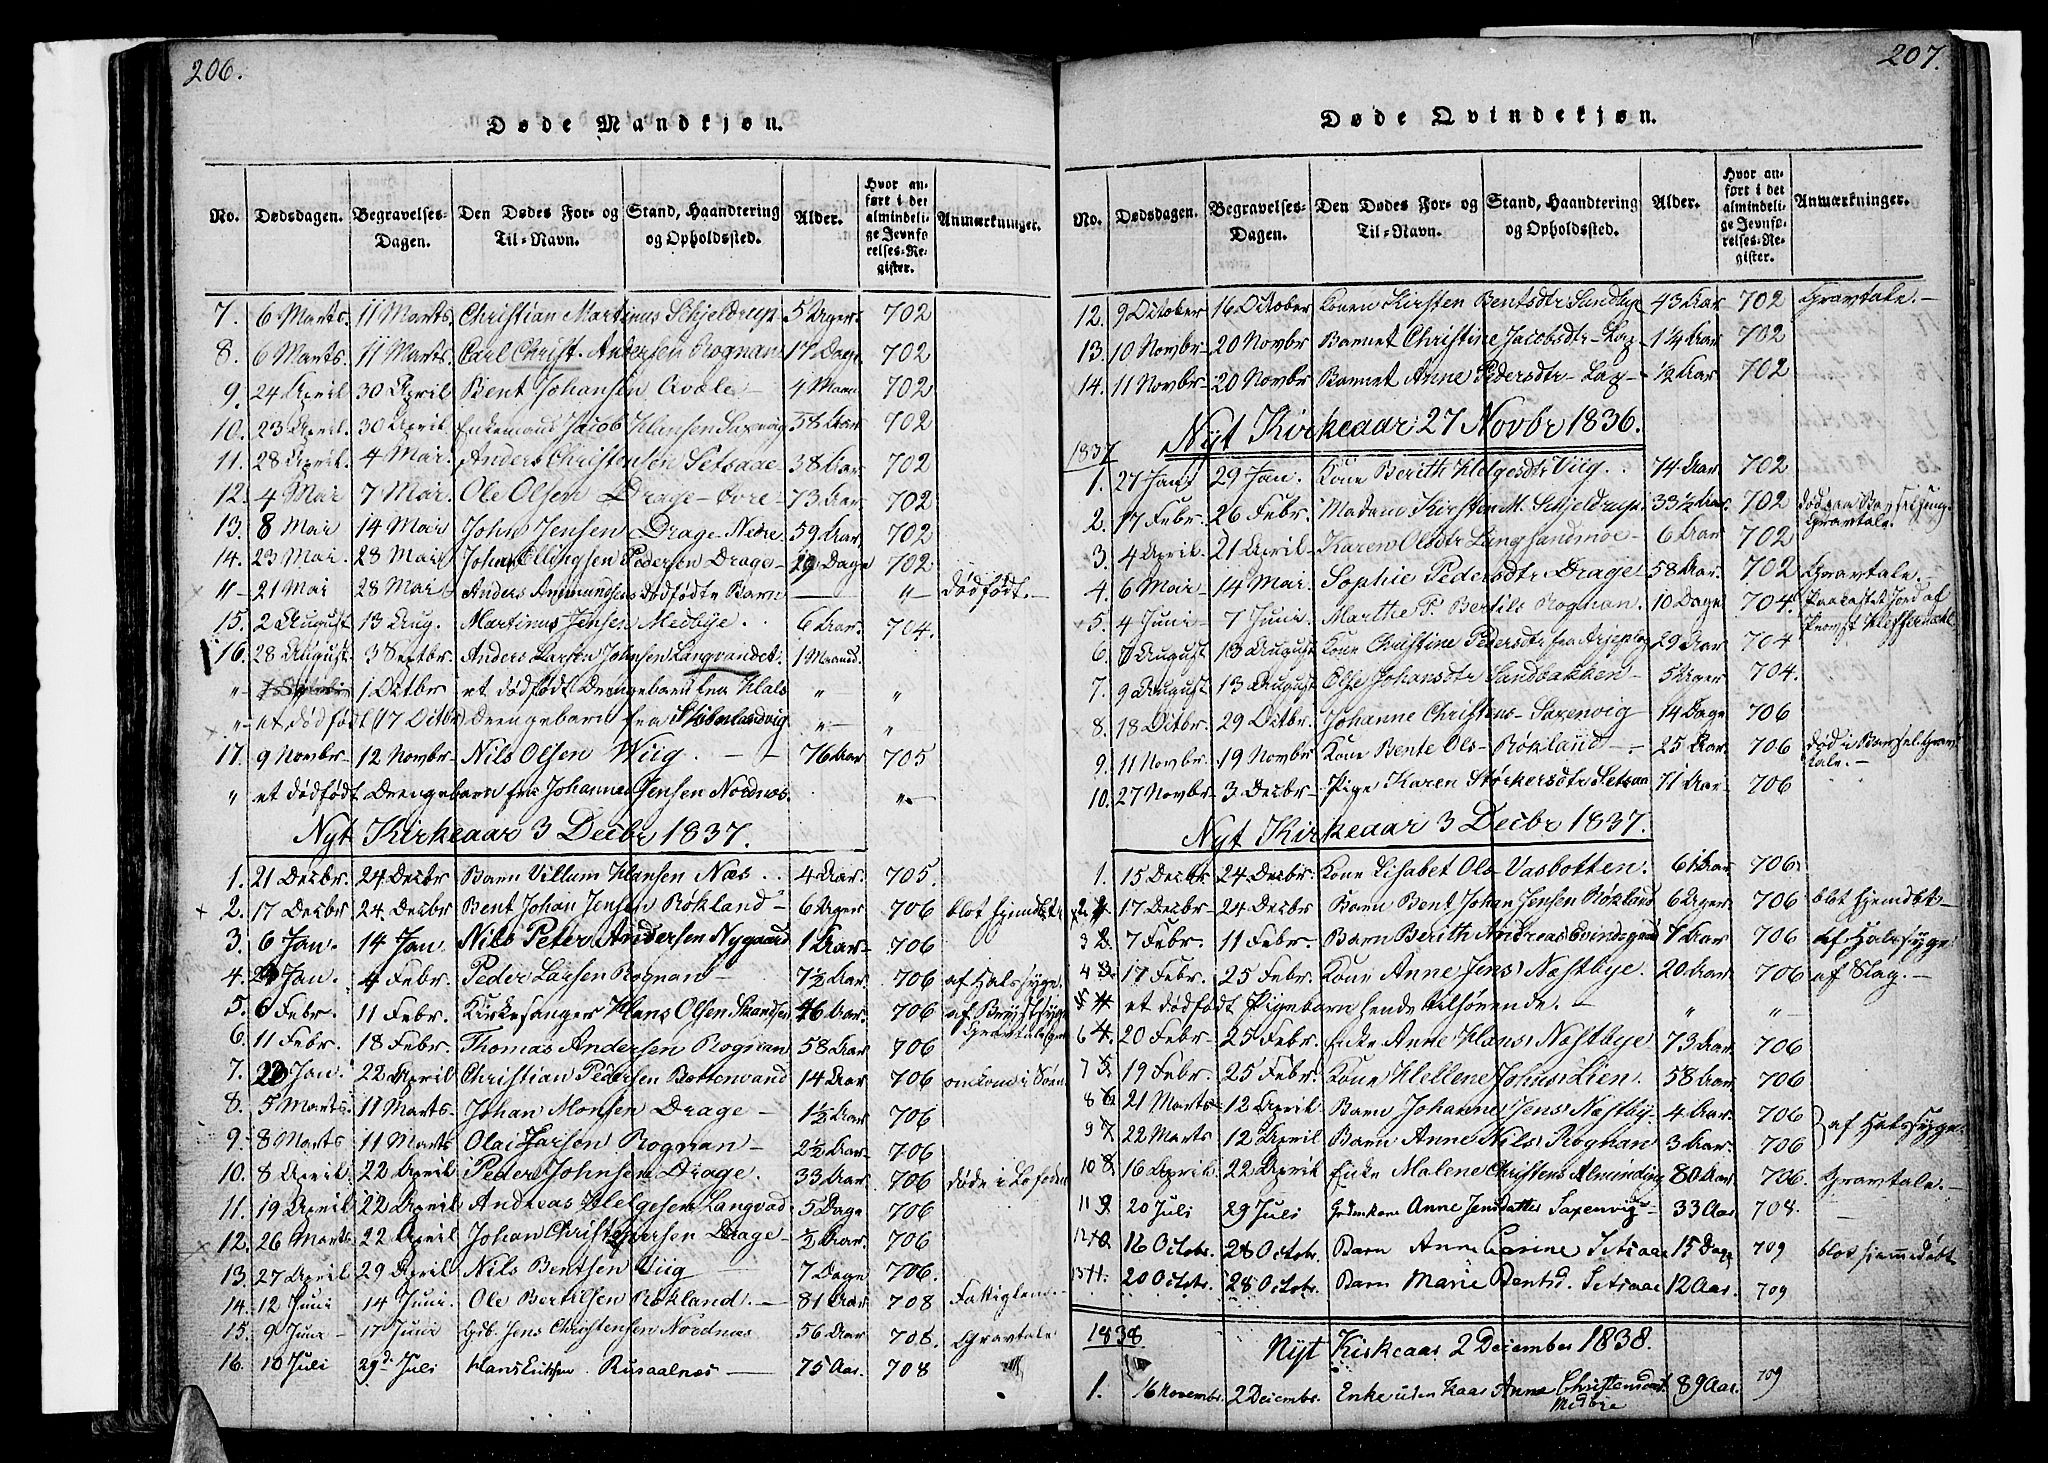 206.
Døde Mandkjøn.
No. Dødsdagen. Begravelses-Dagen. Den Dødes For- og Til-Navn. Stand, Haandtering og Opholdssted. Alder. Hvor anført i det almindelige Jevnførelses-Register. Anmærkninger.
7. 6 Marts. 11 Marts. Christian Martinus Schjeldrup 5 Uger. 702
8. 6 Marts. 11 Marts. Carl Christ. Andersen Rognan 17 Dage 702
9. 24 April 30 April Bent Johansen Qvale 4 Maan 702
10. 23 April. 30 April Enkemand Jacob Hansen Saxenvig 58 Aar 702
11. 28 April. 4 Mai. Anders Christensen Setsaae 38 Aar. 702
12. 4 Mai 7 Mai. Ole Olsen Drage 73 Aar. 702
13. 8 Mai 14 Mai John Jensen Drage Nedre 59 Aar. 702
14. 23 Mai. 28 Mai. Johan Ellingsen Pedersen Drage 29 Dage 702
" 21 Mai 28 Mai Anders Amundsens dødfødte Barn — " dødfødt.
15. 2 August 13 Aug. Martinus Jensen Medbye. 6 Aar. 704.
16. 28 August. 3 Septbr. Anders Larsen Johnsen Langvandet. 1 Maaned. 704
" 1 Octbr et dødfødt Drengebarn fra Hals " "
" et dødfødt (17 Octbr) Drengebarn fra " "
17. 9 Novbr 12 Novbr Nils Olsen Wiig. 76 Aar 705
" et dødfødt Drengebarn fra Johannes Jensen Nordnæs. "
Nyt Kirkeaar 3 Decbr 1837.
1. 21 Decbr. 24 Decbr Barn Villum Hansen Næs. 4 Aar. 705.
2. 17 Decbr 24 Decbr Bent Johan Jensen Røkland 6 Uger 706 blot hjemdøbt
3. 6 Jan. 14 Jan. Nils Peter Andersen Nygaard 1 Aar 706
4. Jan. 4 Febr. Peder Larsen Rognan 7½ Aar. 706 af Halssyge.
5. 6 Febr. 11 Febr. Kirkesanger Hans Olsen 46 Aar. 706 af Brystsyge
6. 11 Febr. 18 Febr. Thomas Andersen Rognan 58 Aar 706 Gravtale
7. 23 Jan. 22 April Christian Pedersen Bottenvand 14 Aar 706 omkom i Søen
8. 5 Marts 11 Marts Johan Monsen Drage 1½ Aar. 706
9. 8 Marts 11 Marts Olai Larsen Rognan 2½ Aar 706
10. 8 April. 22 April Peder Johnsen Drage. 33 Aar. 706 døde i Lofoden
11. 19 April 22 April Andreas Helgesen Langvad 5 Dage 706
12. 26 Marts. 22 April Johan Christophersen Drage ½ Aar. 706
13. 27 April 29 April Nils Bentsen Viig 7 Dage 706.
14. 12 Juni 14 Juni. Ole Bertilsen Røkland. 81 Aar 708 Fattiglem
15. 9 Juni 17 Juni Gdb. Jens Christensen Nordnæs 56 Aar 708. Gravtale
16. 10 Juli 29d. Juli Hans Eriksen Rusaalnes 75 Aar. 708
207.
Døde Qvindekjøn.
No. Dødsdagen. Begravelses-Dagen. Den Dødes For- og Til-Navn. Stand, Haandtering og Opholdssted. Alder. Hvor anført i det almindelige Jevnførelses-Register. Anmærkninger.
12. 9 October 16 October Konen Kirsten Bentsdtr Sandbye 43 Aar 702 Gravtale.
13. 10 Novbr 20 Novbr Barnet Christine Jacobsdtr Lax 1¼ Aar 702
14. 11 Novbr 20 Novbr Barnet Anne Pedersdtr Lax ½ Aar 702
Nyt Kirkeaar 27 Novbr 1836.
1837
1. 27 Jan. 29 Jan. Kone Berith Helgesdtr Viig. 74 Aar 702
2. 17 Febr. 26 Febr. Madam Kirsten M. Schjeldrup. 33½ Aar. 702 død paa Barselseng. Gravtale.
3. 4 April. 21 April Karen Olsdtr Langsandmoe 6 Aar 702
4. 6 Mai 14 Mai Sophie Pedersdtr Drage 58 Aar. 702 Gravtale.
5. 4 Juni 7 Juni Marthe P. Bertils Rognan. 10 Dage 704. Paakastet Jord af Provst
6. 7 August 13 August Kone Christine Pedersdtr fra Arjeplog 29 Aar 704
7. 9 August 13 August Else Johansdtr Sandbakken 5 Uger 704.
8. 18 Octbr. 29 Octbr. Johanne Christens Saxenvig 14 Dage 706
9. 11 Novbr. 19 Novbr. Kone Bente Ols Røkland 25 Aar. 706 død i Barsel. Gravtale.
10. 27 Novbr 3 Decbr Pige Karen Størkersdtr Setsaa 71 Aar 706
Nyt Kirkeaar 3 Decbr 1837.
1. 15 Decbr 24 Decbr. Kone Lisabet Ols Vasbotten. 61 Aar 706.
2 17 Decbr 24 Decbr Barn Bent Johan Jensen Røkland 6 Uger 706 blot hjemdøbt
3 7 Febr. 11 Febr. Barn Berith Andreas Evindsgaard 1 Aar 706 af Halssyge.
4 17 Febr. 25 Febr. Kone Anne Jens Næstbye. 20 Aar 706 af Slag.
5 et dødfødt Pigebarn hende tilhørende. " "
6 20 Febr. 25 Febr. Enke Anne Hans Næstbye 73 Aar 706
7 19 Febr. 25 Febr. Kone Hellene Johns Lien. 58 Aar 706
8 21 Marts 12 April Barn Johanne Jens Næstby. 4 Aar. 706
9 22 Marts 12 April Barn Anne Nils Rognan 3 Aar. 706 } af Halssyge.
10 16 April. 22 April Enke Malene Christens Almindig 80 Aar. 706. Gravtale.
11 20 Juli 29 Juli Anne Jensdatter Saxenvig 33 Aar 708.
12 16 Octobr. 28 Octobr. Barn Anne Carine Setsaae 15 Dage 709 blot hjemmedøbt
13 20 Octobr. 28 Octobr. Barn Marie Bentsd. Setsaae 12 Aar. 709
1838. Nyt Kirkeaar 2 December 1838.
1. 16 Novembr. 2 Decembr. Enke uden Kaar Anne Christensdat. Medbye 89 Aar. 709